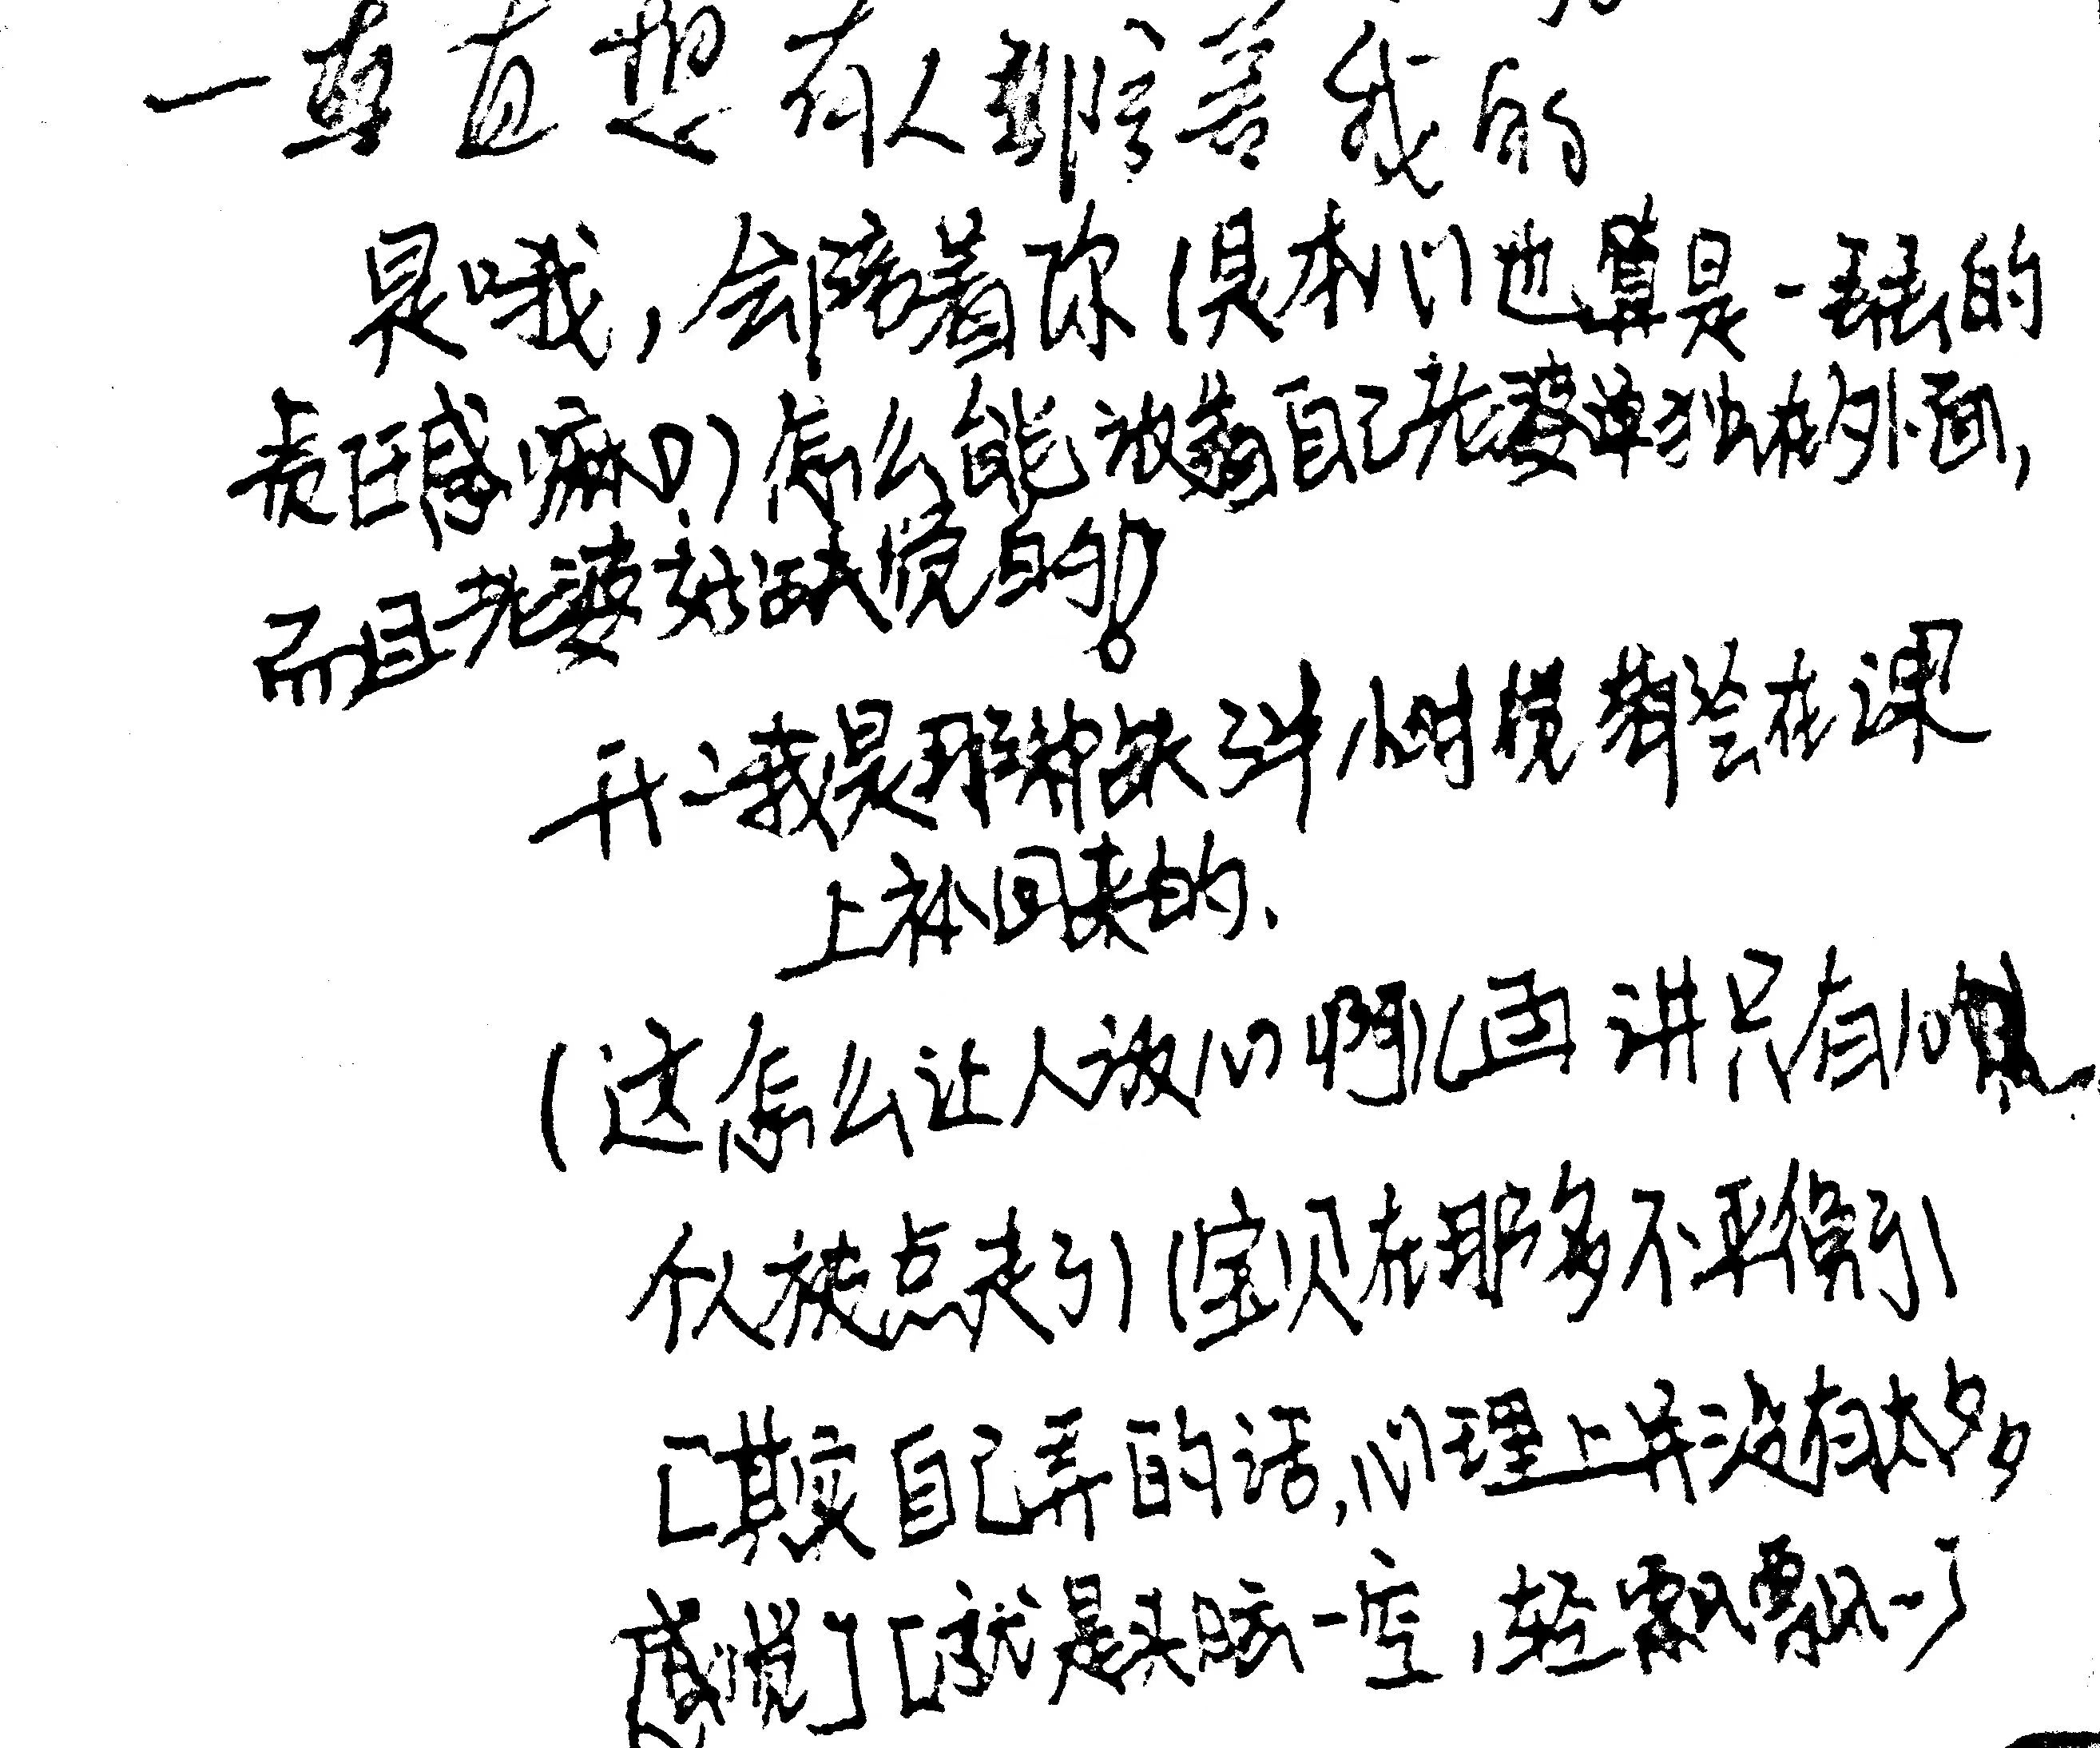 一直直想有人那陪着我的
是哦，会陪着你(具本心也算是一丢丢的
责任感嘛D)怎么能放着自己老婆单独在外面，
而且老婆好诱惑的！
我是那种缺觉在课
上补回来的.
(这怎么让人放心啊)(西讲只有10
个人被点走了)(宝贝在那多不平衡了)
[其实自己弄的话,心理上并没有太多
感觉][就是头脑一空,轻飘飘…]